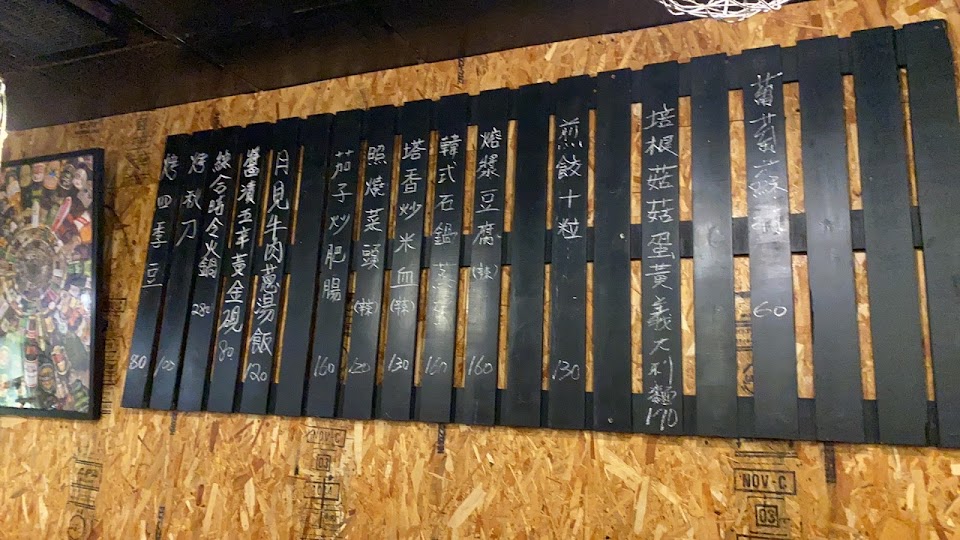 培根菇菇蛋黃義大利麵 170
煎餃十粒 130
熔漿豆腐(辣) 160
韓式石鍋蒸蛋 160
塔香炒米血(辣) 130
照燒菜頭(辣) 120
茄子炒肥腸 160
月見牛肉蔥湯飯 120
醬漬五辛黃金硯 80
綜合時令火鍋 280
烤秋刀 100
烤四季豆 80
60
NOV-C
03
NOV-C
03